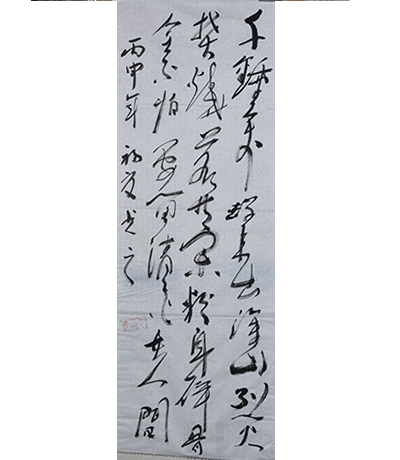 千錘万出深山烈火
焚燒若等粉身碎骨
全不怕要留清白在人間
丙申年